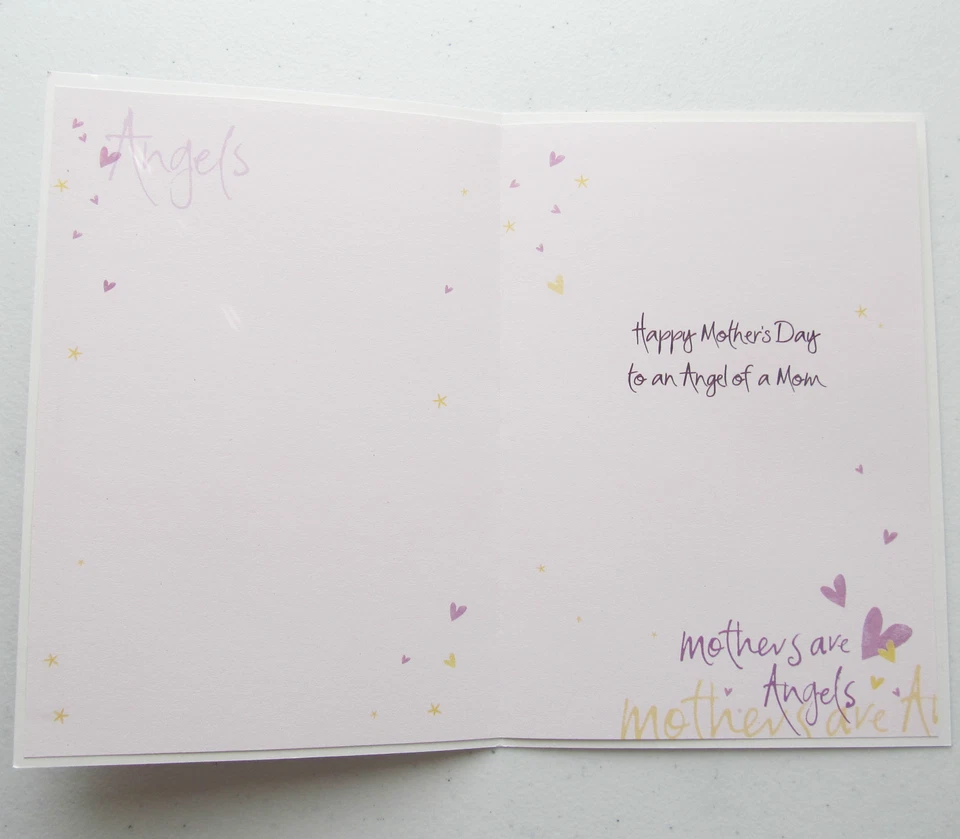 Angels
Happy Mother's Day
to an Angel of a Mom
mothers are
Angels
mothers are A